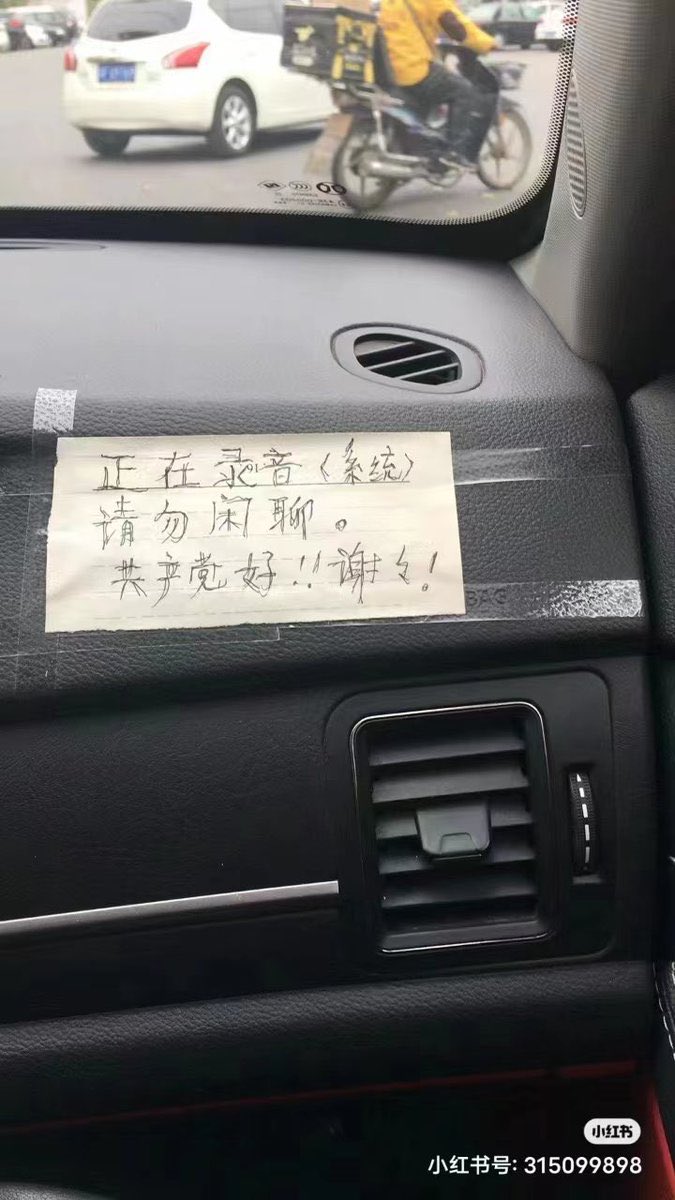 正在录音（系统）
请勿闲聊。
共产党好!!谢々!
BAG
小红书
小红书号: 315099898